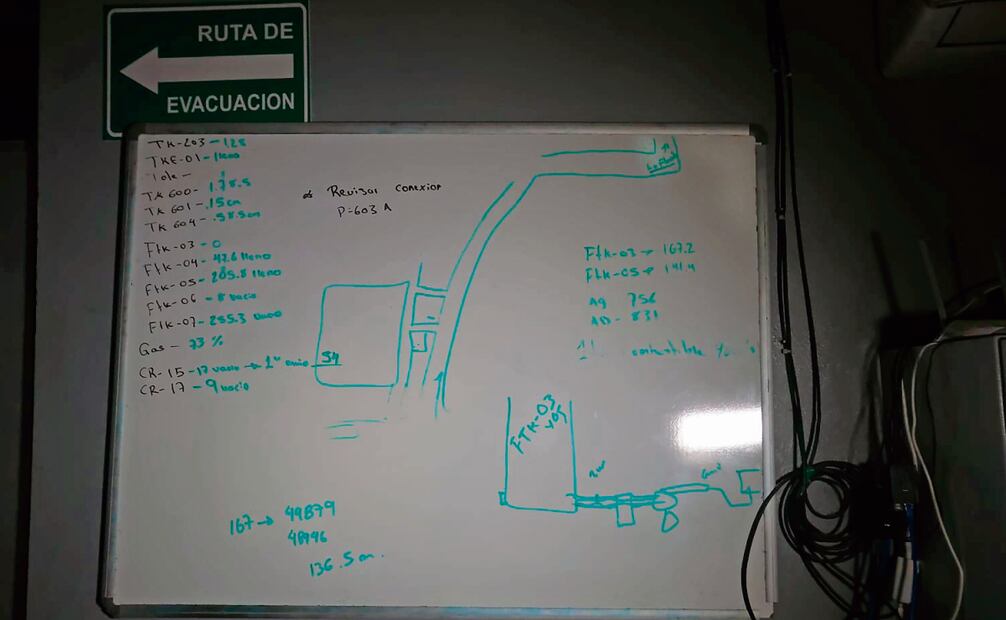 RUTA DE
EVACUACION
TK-203 - 128
TKE-01 - lleno
Tote -
TK 600 - 1.78.5
TK 601 - .15cm
TK 604 - .58.5cm
Ftk-03 - 0
Ftk-04 - 47.6 lleno
Ftk-05 - 205.8 lleno
Ftk-06 - 8 vacio
Ftk-07 - 255.3 vacio
Gas - 73 %
CR-15 - 17 vacio → 1°
54
CR-17 - 9 vacio
Revisar conexion
P-603 A
Ftk-03 → 167.2
Ftk-05 → 141.4
Ag 756
AD - 831
combustible
FTK-03
y05
167 → 49879
48946
136.5 cm.